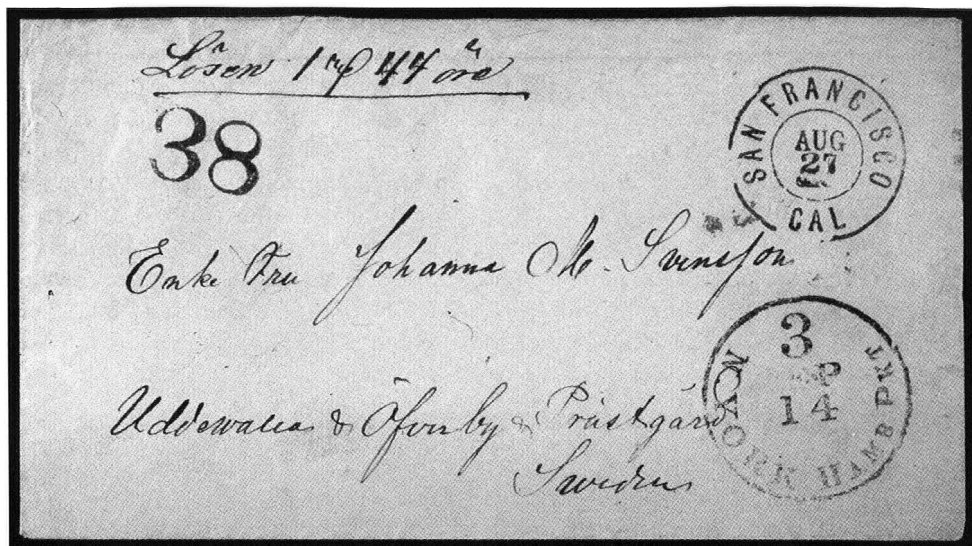 Lösen 1 rd 44 öre
38
SAN FRANCISCO
AUG
27
CAL
Enke Fru Johanna M. Svensson
3
SEP
14
N. YORK HAMB PKT
Uddewalla & Öfverby & Prästgård
Sweden